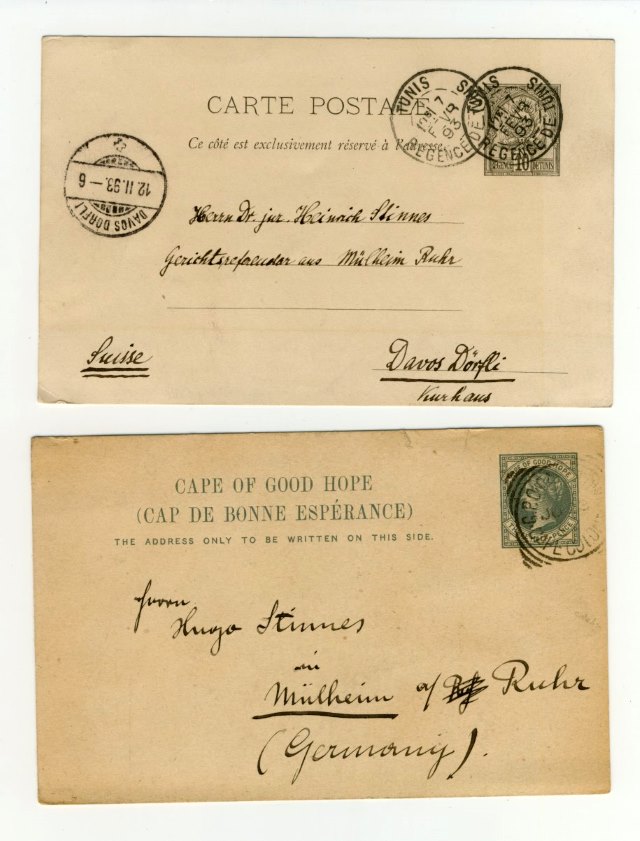 CARTE POSTALE
Ce côté est exclusivement réservé à l'adresse.
TUNIS
7
FEVR
93
REGENCE DE TUNIS
TUNIS
7
FEVR
93
REGENCE DE
REGENCE 10 DE TUNIS
12. II. 93. — 6
DAVOS DÖRFLI
Herrn Dr jur. Heinrich Stinnes
Gerichtsreferendar aus Mülheim Ruhr
Suisse
Davos Dörfli
Kurhaus
CAPE OF GOOD HOPE
(CAP DE BONNE ESPÉRANCE)
THE ADDRESS ONLY TO BE WRITTEN ON THIS SIDE.
CAPE OF GOOD HOPE
G.P.O.
Herrn
Hugo Stinnes
in
Mülheim a/ Ruhr
(Germany).